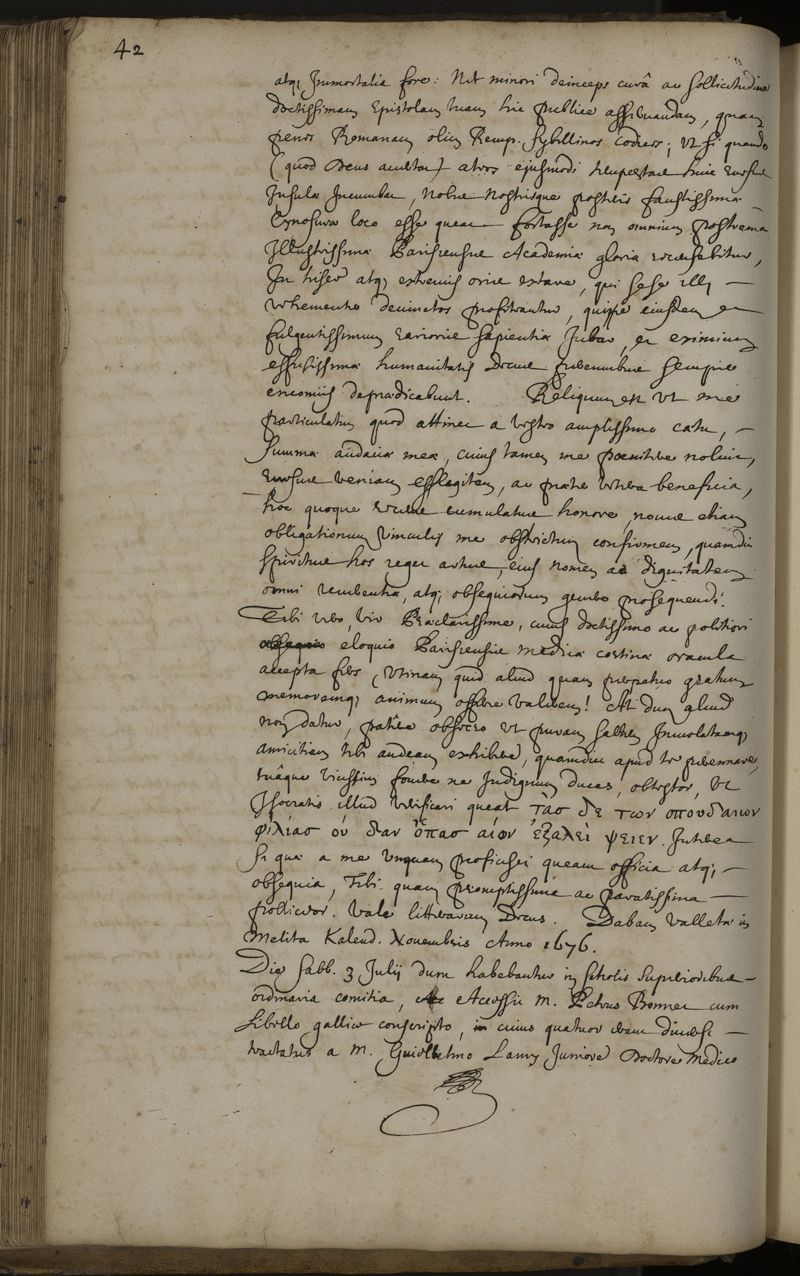 42
atq; Immortalia fore: Nec minori deinceps curâ ac sollicitudine
doctissimam Epistolam tuam hic publice asservandam, quam
penes Romanam olim Remp. Sybillinos codices; ut si quando
(quod Deus avertat) atrox ejusmodi tempestas huic rursus
Insulæ Incumbat, nobis nostrisque posteris faustissimæ
Cynosuræ loco esse queat fortasse non omnium postrema
Illustrissimæ Parisiensis Academiæ gloria recensebitur,
In triserò atq; extremis oris extare, qui sese illi —
vehementer devinctos profiteantur, quippe eiusdem et
fulgentissimum rarioris sapientiæ Jubar, et eximium
effusissimæ humanitatis Decus perennibus semper
encomiis deprædicabunt. Reliquum est ut me
particulatim quod attinet a vestro amplissimo cætu, —
summæ audaciæ meæ, cuius tamen me poenitere nolim,
rursus veniam efflagitem, ac præter vetera beneficia,
hoc quoque recens cumulatus honore, novis etiam
obligationum vinculis me obstrictum confirmem, quamdiu
spiritus hos reget artus, eius nomen ac dignitatem
omni reverentia, atq; obsequiorum genere prosequendi.
Tibi vero, vir Præclarissime, cuius doctissimo ac politiori
eloquio Parisiensis medicæ cortinæ oracula
accepta fero, Utinam quid aliud quam perpetuo gratum
memoremq; animum offerre valerem! At dum aliud
non datur, patere obsecro ut puram saltem Inviolatamq;
amicitiam tibi audeam exhibere, quamdiu apud te perennare,
tuâque vicissim fovere ne Indignum ducas, obtestor, ut
Isocratis illud verificari queat τὰσ δὲ των σπουδαιων
φιλίασ οὐ δ'αν ὁ πασ αἰὼν ἐξαλεὶ ψειεν. Interea
si qua a me unquam proficisci queant officia atq; —
obsequia, Tibi quam promptissima ac paratissima —
polliceor. Vale litterarum Decus. Dabam Valletæ in
Melita Kalend. Novembris Anno 1676.
Die Sabb. 3 Julij dum haberentur in scholis superioribus —
ordinaria comitia, Accessit M. Petrus Bonnet cum
Libello gallicè conscripto, in cuius quatuor erant diversi —
tractatus a M. Guillelmo Lamy Juniore Doctore Medico